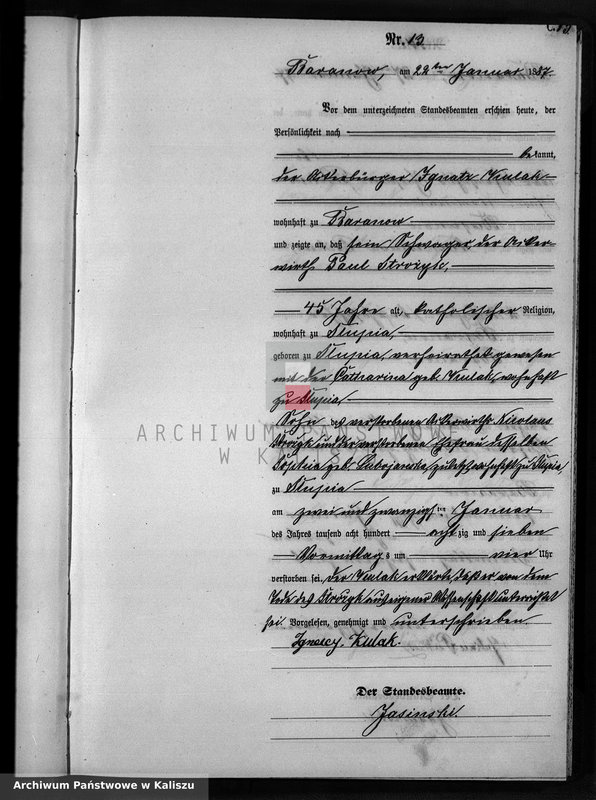 Nr. 13
Baranow, am 22ten Januar 1887
Vor dem unterzeichneten Standesbeamten erschien heute, der
Persönlichkeit nach
bekannt,
der Ackerbürger Ignatz Kulak
wohnhaft zu Baranow
und zeigte an, daß sein Schwager der Acker-
wirth Paul Strozyk,
45 Jahre alt, katholischer Religion,
wohnhaft zu Slupia,
geboren zu Slupia, verheirathet gewesen
mit der Catharina geb. Kulak, wohnhaft
zu Slupia
Sohn des verstorbenen Ackerwirths Nicolaus
Strozyk und der verstorbenen Ehefrau desselben
Sophia geb. zuletzt wohnhaft zu Slupia,
zu Slupia
am zwei und zwanzigsten Januar
des Jahres tausend acht hundert achtzig und sieben
Vormittags um vier Uhr
verstorben sei, der Kulak erklärte, daß er von dem
Tode des Strozyk aus eigener Wissenschaft unterrichtet
sei. Vorgelesen, genehmigt und unterschrieben
Ignacy Kulak.
Der Standesbeamte.
Jasinski.
ARCHIWUM PAŃSTWOWE
W KALISZU
Archiwum Państwowe w Kaliszu